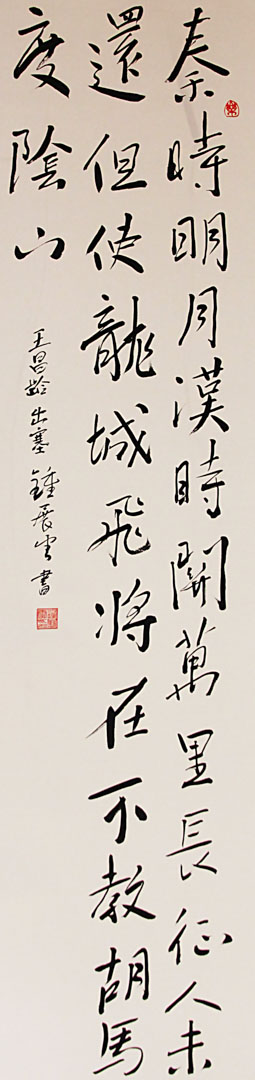 秦時明月漢時關萬里長征人未
還但使龍城飛將在不教胡馬
度陰山
王昌齡出塞 鍾展雲書